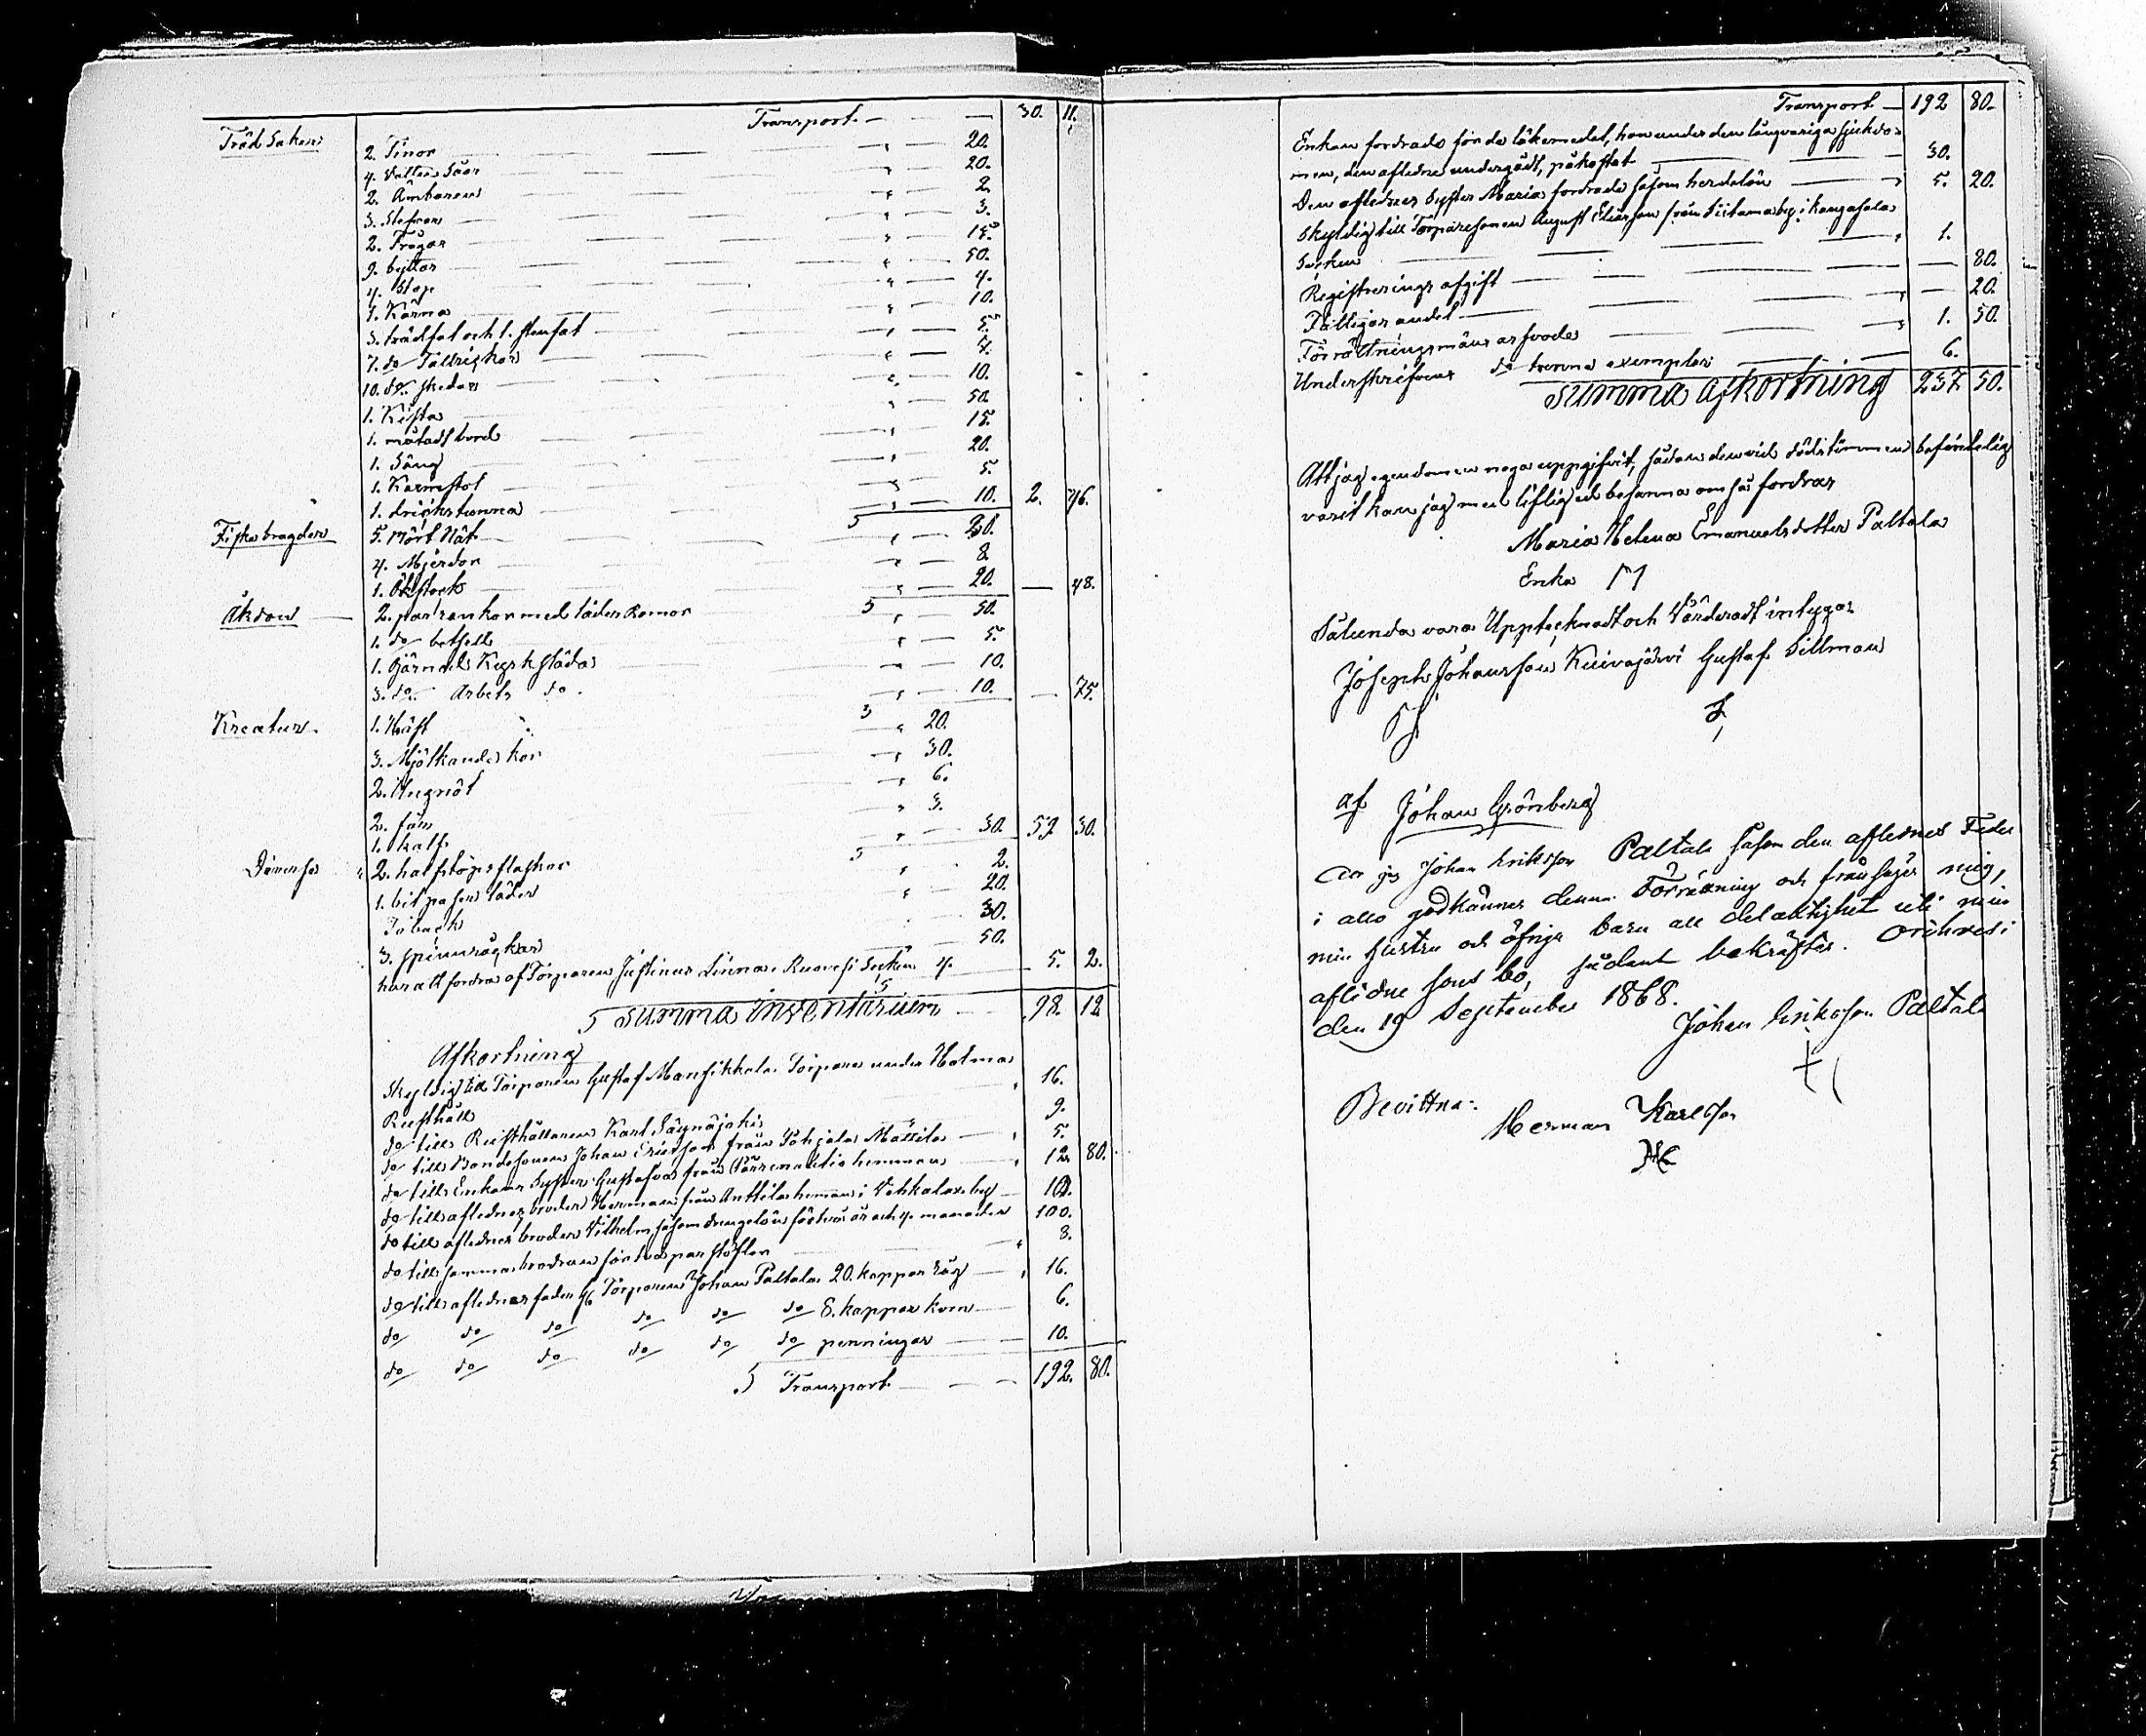 Transport 30. 11.
Träd Saker 2. Tinor " 20.
4. Vatten Såar " 20.
2. Ämbaren " 2.
3. Stefvor " 3.
2. Trågar " 15.
9. byttor " 50.
4. Stop " 4.
1. Kärna " 10.
3. trädfat och 1. stenfat " 5.
7. do Tallrickar " 7.
10. do skedar " 10.
1. Kista " 50.
1. måladt bord " 15.
1. Säng " 20.
1. Karmstol " 5.
1. drickstunna " 10. 2. 46.
Fiskebragder 5. Mört Nät " 20.
4. Mjerdor " 8.
1. Ökstock " 20. — 48.
Åkdon 2. par rankor med läder Remor " 50.
1. do bethsell " 5.
1. Gärnads Kyrk släda " 10.
3. do Arbets do. " 10. — 75.
Kreatur. 1. Häst " 20.
3. Mjölkande kor " 30.
2. Ungnöt " 6.
2. får " 3.
1. kalf " 30. 59 30.
Diverse 2. halfstops flaskor " 2.
1. bit läder " 20.
Toback 30.
3. spinnråckar 50.
har att fordra af Torparen Justinus Linna i Ruovesi Socken 4. 5. 2.
Summa inventarium 98. 12
Afkortning
Skyldig till Torparen Gustaf Mansikkala Torpare under Holma
Rusthåll " 16.
do till Rusthållaren Karl Säynäjoki 9.
do till Bondesonen Johan Ericsson från Pohjala Mattila " 5.
do till Enkans Syster Gustafva från hemman " 12 80.
do till aflednes broder Herman från Anttila heman i Vehkalax by 10.
do till aflednes broder Vilhelm såsom drengelön för två år och 4. månader 100.
do till samma brodren för två par stöflor " 8.
do till aflednes fader Torparen Johan Paltala 20. kappar Råg " 16.
do do do do do do 8. kappar korn 6.
do do do do do do penningar 10.
Transport 192. 80.
Transport 192 80.
Enkan fordrade för de läkemedel, hon under den långvariga sjukdo-
men, den afledne undergådt, påkostat 30.
Den aflednes Syster Maria fordrade såsom herdelön 5. 20.
Skyldig till Torparesonen August Eliasson från Siitama by i Kangasala
Socken " 1.
Registrerings afgift 80.
Fattigas andel " 20.
Förrättningsmäns arfvode " 1. 50.
Underskrifvens do trenne exemplar 6.
Summa Afkortning 237 50.
Att jag egendomen noga uppgifvit, sådan den vid dödstimmen befintelig
varit kan jag med liflig ed besanna om så fordras
Maria Helena Emanuelsdotter Paltala
Enka M
Sålunda vara Upptecknadt och Värderadt intygar
Joseph Johansson Kuivajärvi Gustaf Sillman
af Johan Grönberg
Der jag Johan Eriksson Paltala såsom den aflednes Fader
i allo godkänner denna Förrättning och frånsäger mig,
min Hustru och öfriga barn all delaktighet uti min
aflidne sons bo, sådant bekräftas. Orihvesi
den 19 September 1868.
Johan Eriksson Paltala
Bevittna:
Herman Karlsson
HK